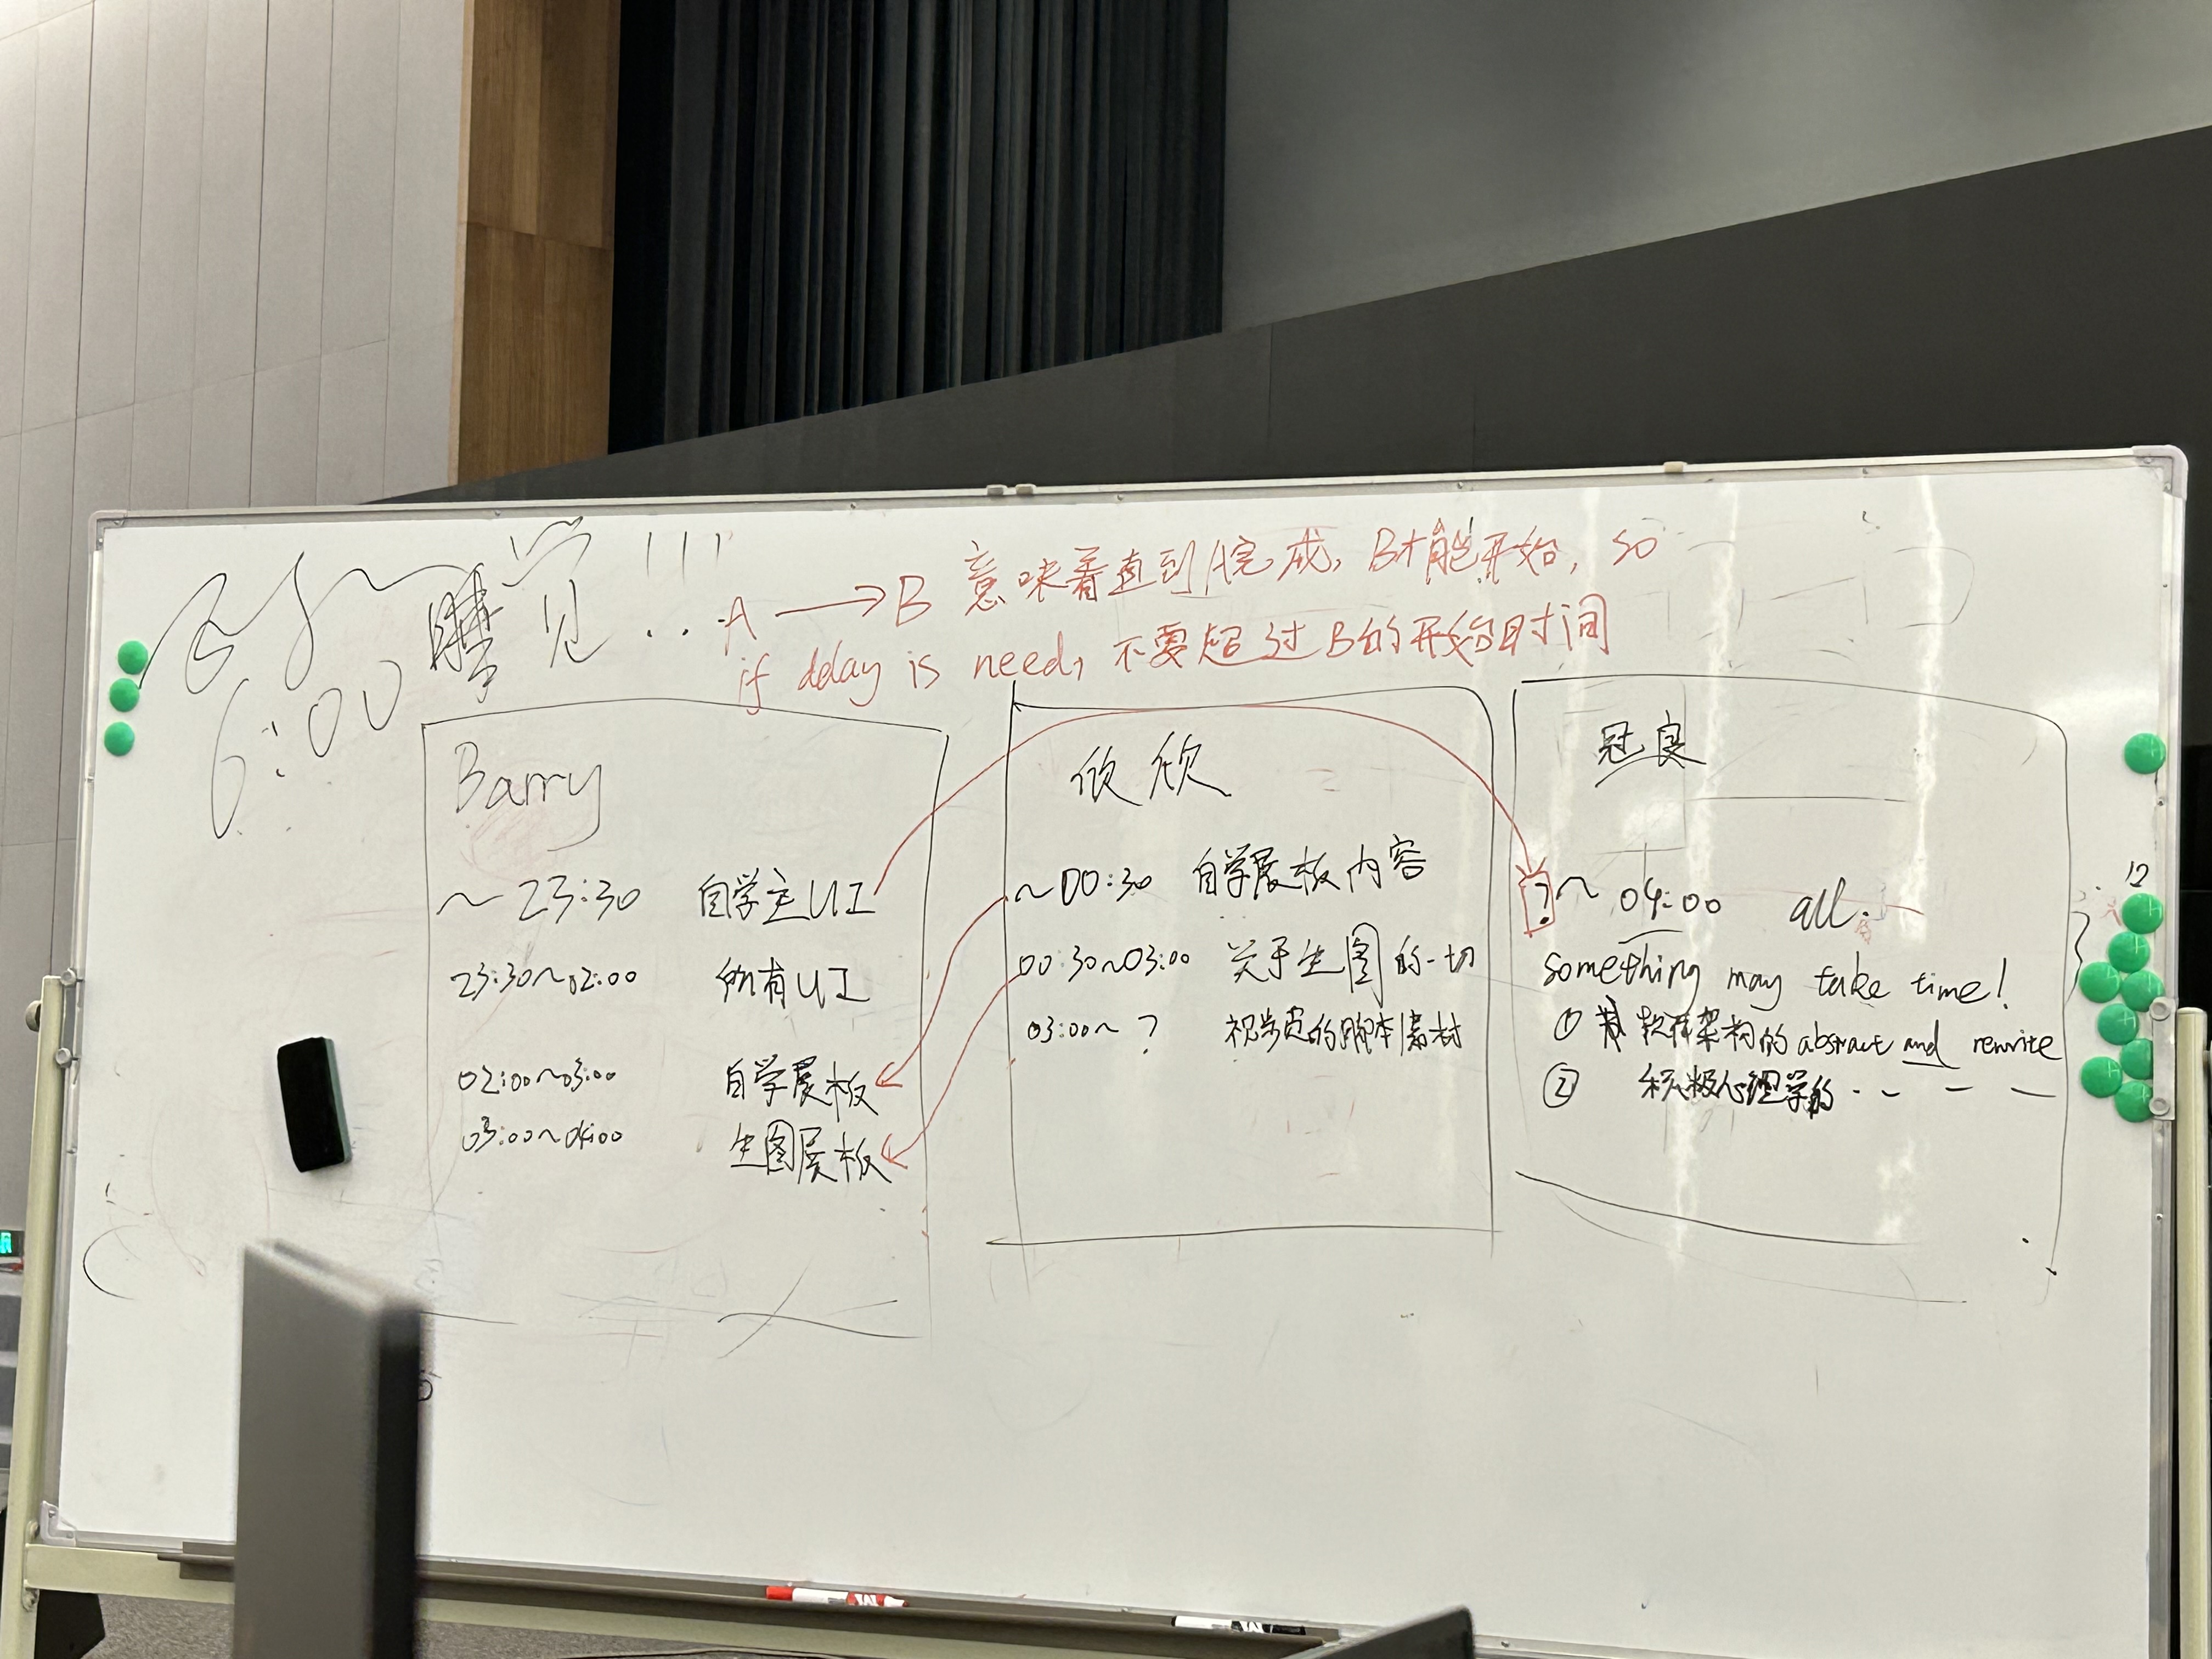 6:00 睡觉!!!...
A → B 意味着直到A完成, B才能开始, so
if delay is need, 不要超过B的开始时间
Barry
~ 23:30 自学主UI
23:30~02:00 所有UI
02:00~03:00 自学展板
03:00~04:00 生图展板
欣欣
~00:30 自学展板内容
00:30~03:00 关于生图的一切
03:00~ ? 视频的脚本/素材
冠良
? ~ 04:00 all.
something may take time!
① 软件架构的 abstract and rewrite
② 积极心理学的 . - - -
12